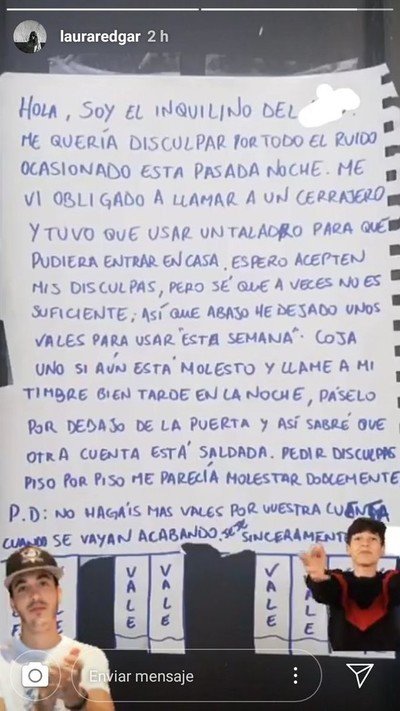 lauraredgar 2 h
HOLA, SOY EL INQUILINO DEL
ME QUERÍA DISCULPAR POR TODO EL RUIDO
OCASIONADO ESTA PASADA NOCHE. ME
VI OBLIGADO A LLAMAR A UN CERRAJERO
Y TUVO QUE USAR UN TALADRO PARA QUE
PUDIERA ENTRAR EN CASA. ESPERO ACEPTEN
MIS DISCULPAS, PERO SÉ QUE A VECES NO ES
SUFICIENTE; ASÍ QUE ABAJO HE DEJADO UNOS
VALES PARA USAR "ESTA SEMANA". COJA
UNO SI AÚN ESTÁ MOLESTO Y LLAME A MI
TIMBRE BIEN TARDE EN LA NOCHE, PÁSELO
POR DEBAJO DE LA PUERTA Y ASÍ SABRÉ QUE
OTRA CUENTA ESTÁ SALDADA. PEDIR DISCULPAS
PISO POR PISO ME PARECÍA MOLESTAR DOBLEMENTE
P.D: NO HAGÁIS MAS VALES POR VUESTRA CUENTA
CUANDO SE VAYAN ACABANDO, SINCERAMENTE
VALE VALE VALE VALE
Enviar mensaje